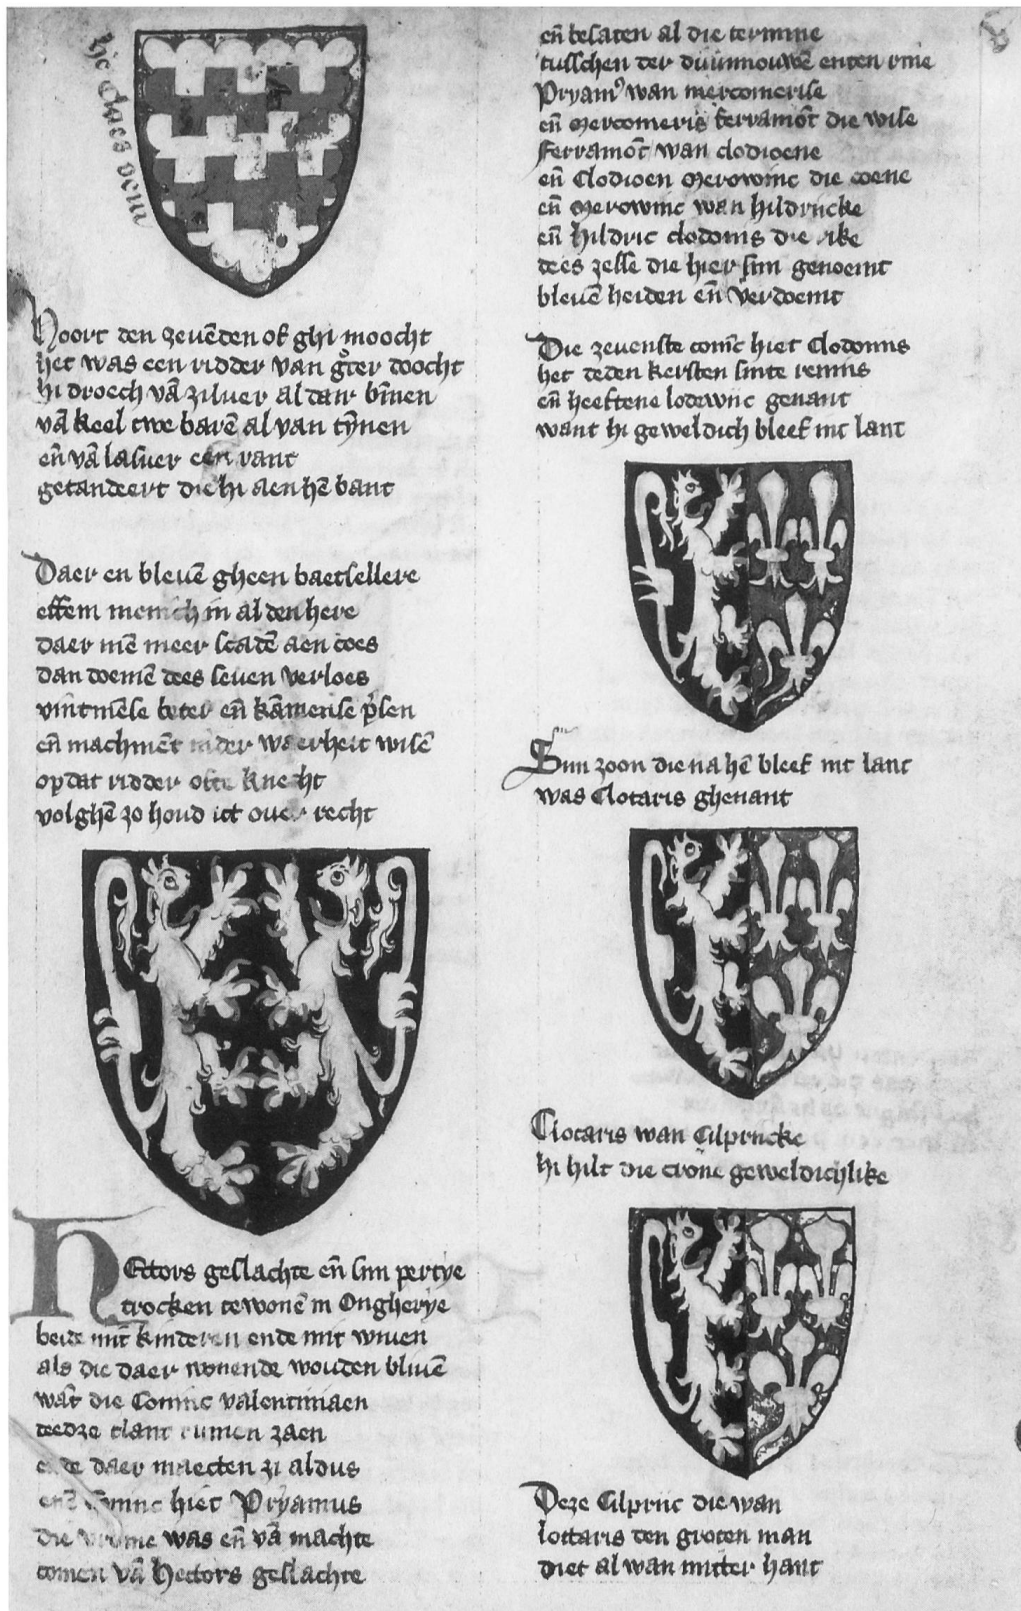 hẽ Claes vem
Hoort den zeuẽden of ghi moocht
het was een ridder van gᵒter doocht
hi droech vã ziluer al dair bĩnen
vã keel twe barẽ al van tỹnen
eñ vã lasuer een rant
getandeert die hi aen hẽ bant
Daer en bleuẽ gheen baetsellere
effem menich in al den here
daer mẽ meer scadẽ aen coes
dan doemẽ dees seuen verloes
vintmẽse beter eñ kãmense p̃sen
eñ machmẽt in der waerheit wisẽ
op dat ridder ofte knecht
volghẽ zo houd ict ouer recht
HEctors geslachte eñ sijn pertye
trocken te wonẽ in Ongherye
beide mit kinderen ende mit wiuen
als die daer wonende wouden bliuẽ
wãt die Coninc valentiniaen
deedze tlant rumen zaen
ende daer maecten zi aldus
enẽ Coninc hiet Pryamus
die vrome was eñ vã machte
comen vã Hectors geslachte
eñ besaten al die termine
tusschen der duunnouwẽ enten rine
Pryamꝰ wan mercomerise
eñ Mercomeris ferramõt die wise
Ferramõt wan clodioene
eñ Clodioen Merowinc die coene
eñ Merowinc wan hildricke
eñ hildric clodouis die rike
dees zesse die hier sijn genoemt
bleuẽ heiden eñ verdoemt
Die zeuenste conĩc hiet Clodouius
het deden kersten sinte remiis
eñ heeftene lodewijc genant
want hi geweldich bleef int lant
Sijn zoon die na hẽ bleef int lant
was Clotaris ghenant
Clotaris wan Cilpricke
hi hilt die crone geweldichlike
Deze Cilpriic die wan
lottaris den groten man
diet al wan mitter hant